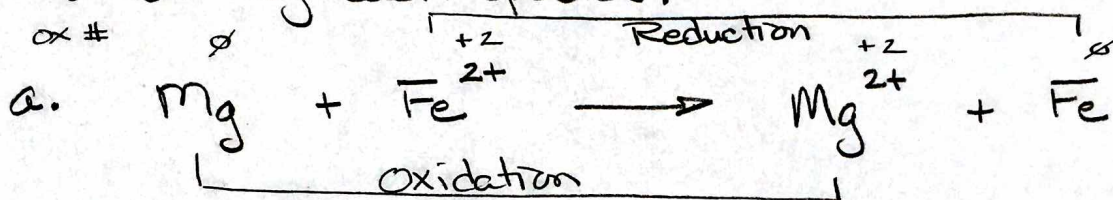 ox # ø +2 Reduction +2 ø
a. Mg + Fe²⁺ → Mg²⁺ + Fe
Oxidation